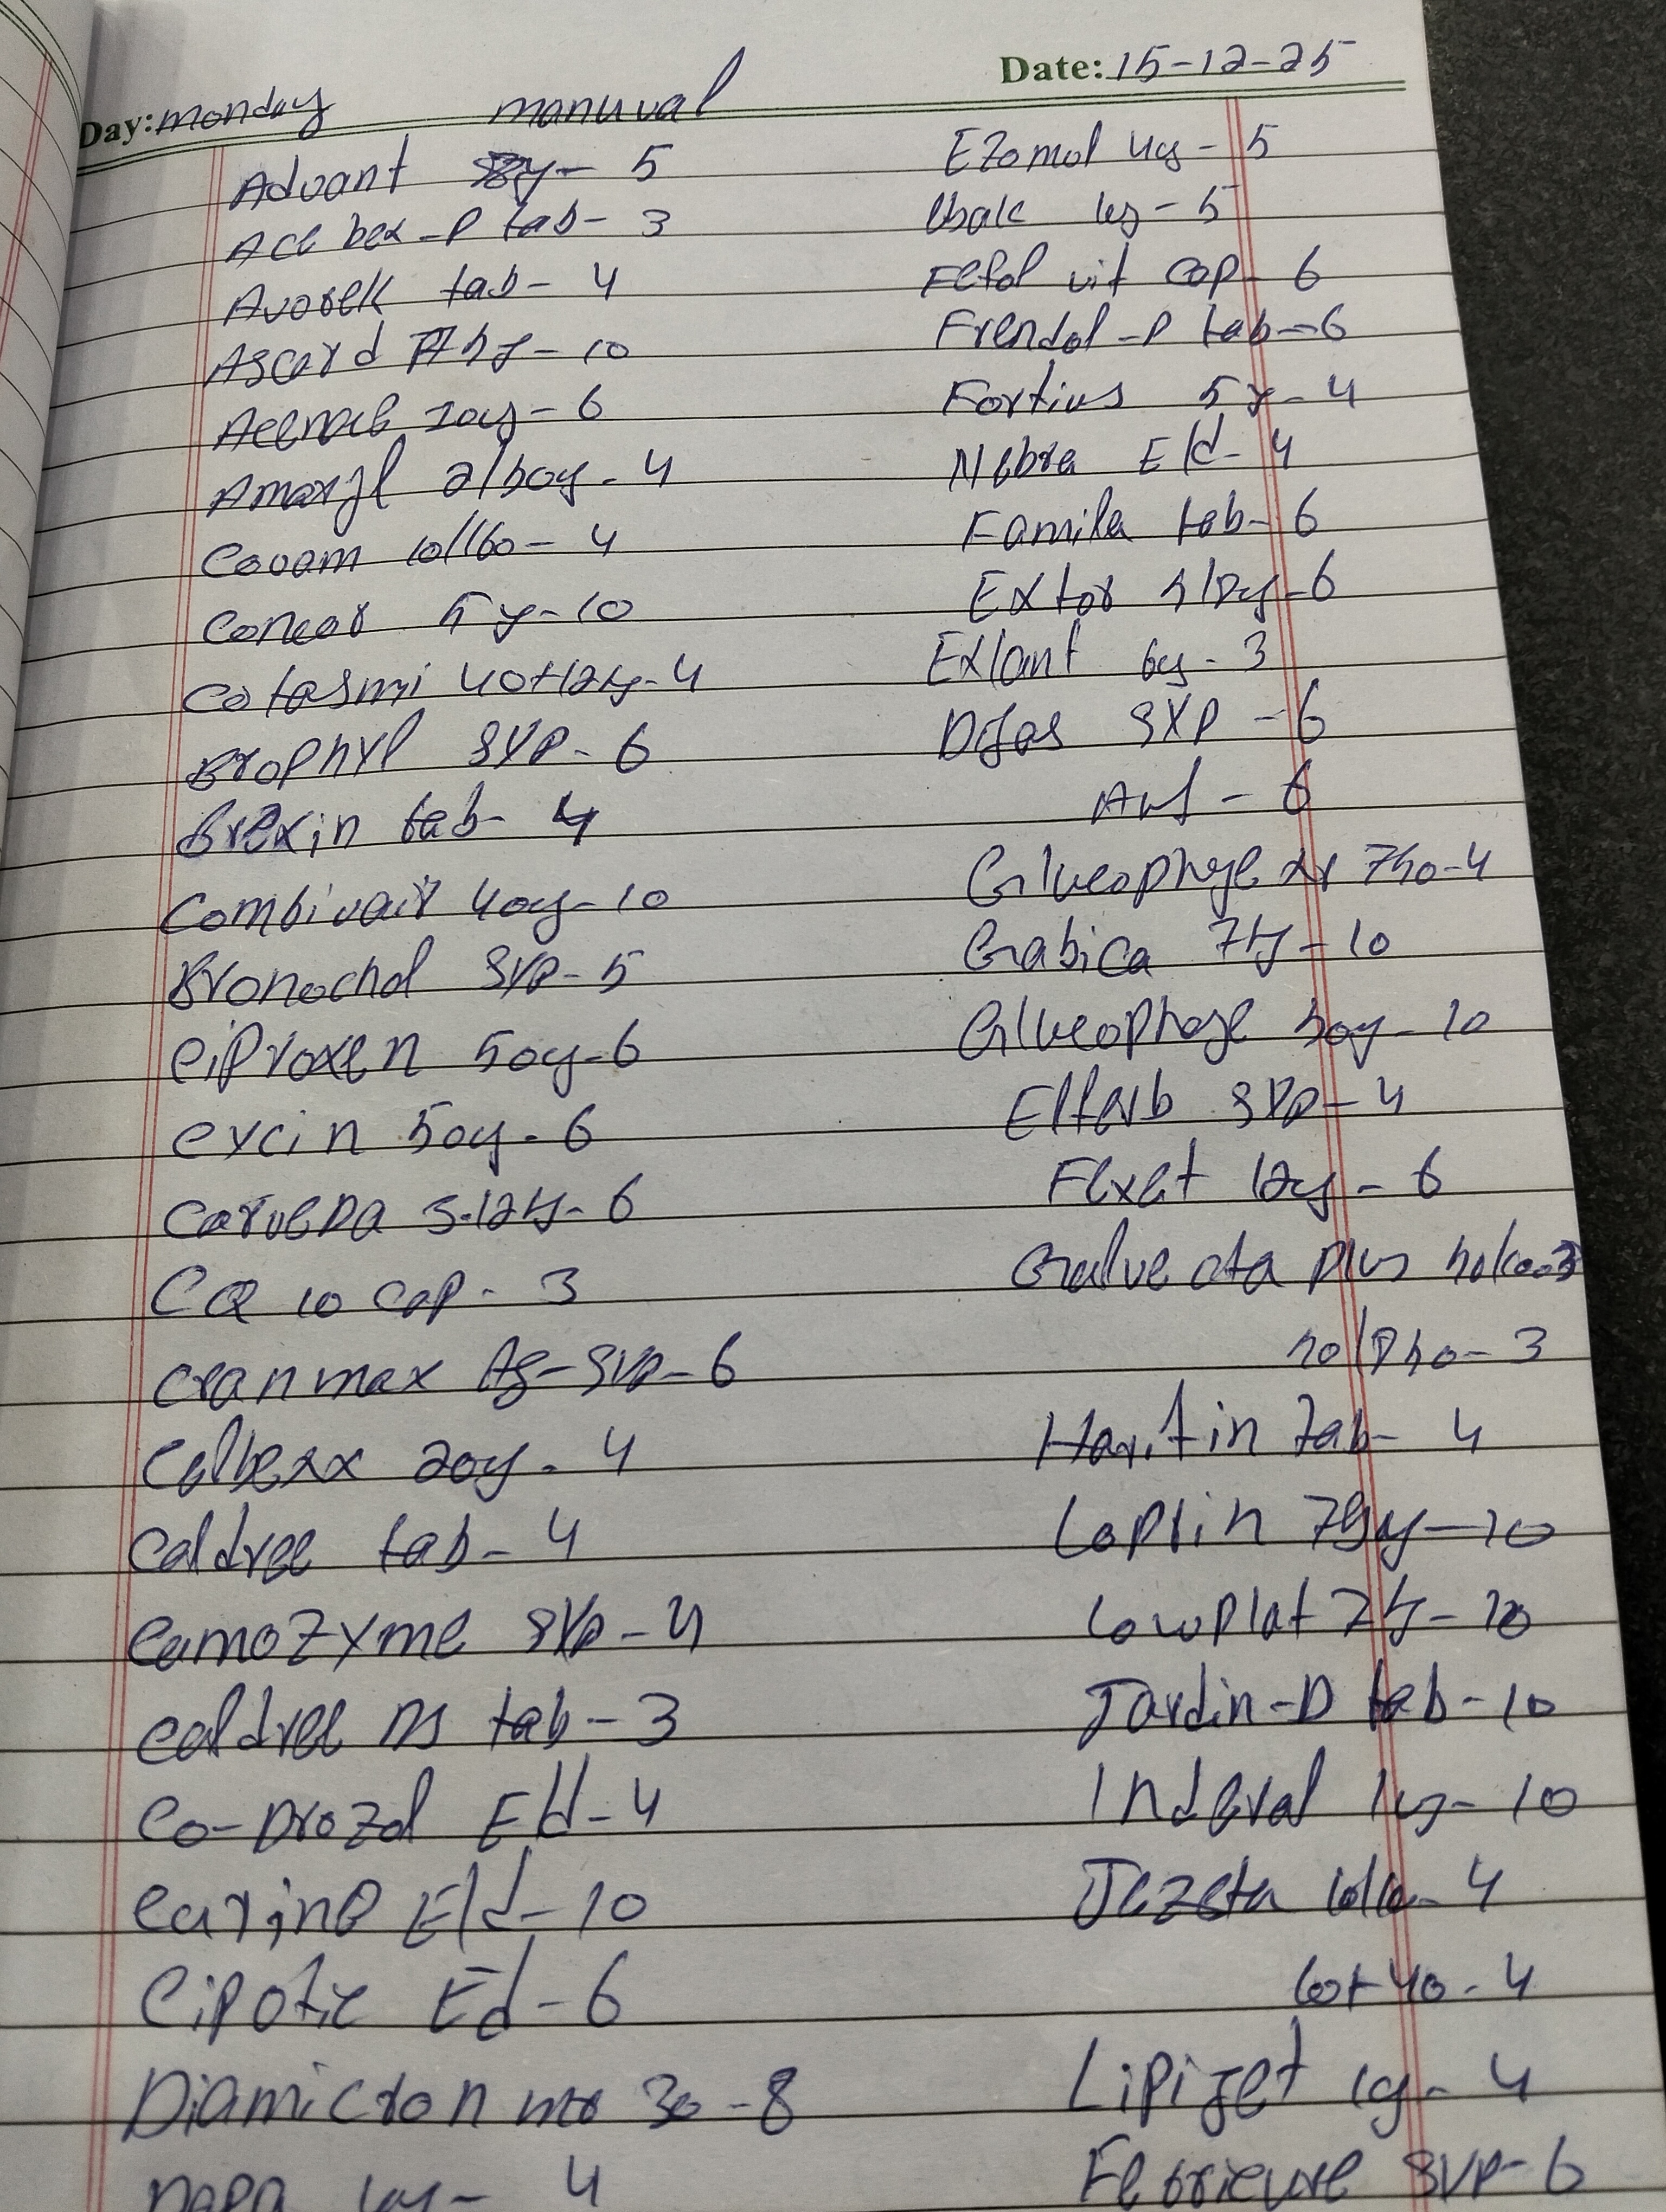 Day: monday manuval Date: 15-12-25
Advant 8y - 5
Ace bex-P tab - 3
Avorek tab - 4
Ascard 75y - 10
10y - 6
Amaryl 2/500y - 4
Covam 10/160 - 4
Concor 5y - 10
Cotasmi 40+12.5y - 4
Brophyl syp - 6
Brexin tab - 4
Combivair 400y - 10
Bronochol syp - 5
Ciproxen 500y - 6
excin 500y - 6
Carveda 3.125y - 6
CQ 10 cap - 3
cranmax syp - 6
Celbexx 200y - 4
Caldree tab - 4
Camozyme syp - 4
caldree DS tab - 3
Co-Drozal E/d - 4
E/d - 10
Cipotic Ed - 6
Diamicron mr 30 - 8
DAPA 10y - 4
Ezomol 40y - 5
10y - 5
Fefol vit cap - 6
Frendol-P tab - 6
Fortius 5y - 4
Nebra E/d - 4
Famila tab - 6
Extor 5/80y - 6
Exlant 60y - 3
Difas syp - 6
- 6
Glucophage xr 750 - 4
Gabica 75y - 10
Glucophage 500y - 10
Elferb syp - 4
Flxet 120y - 6
Galvecta plus 50/1000 - 3
50/850 - 3
Haritin tab - 4
Loprin 75y - 10
Lowplat 75y - 10
Jardin-D tab - 10
Inderal 10y - 10
Jezeta 10/10 - 4
10+40 - 4
Lipiget 10y - 4
syp - 6